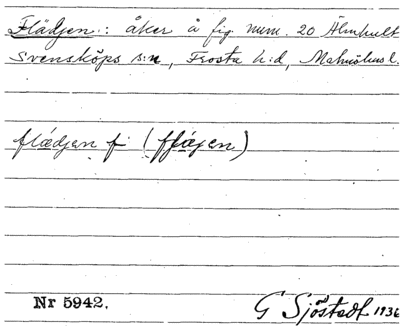 Flädjen: åker å fig. num. 20 Älmhult
Svensköps s:n, Frosta h:d, Malmöhus l.
flædjen f
Nr 5942. G Sjöstedt 1936